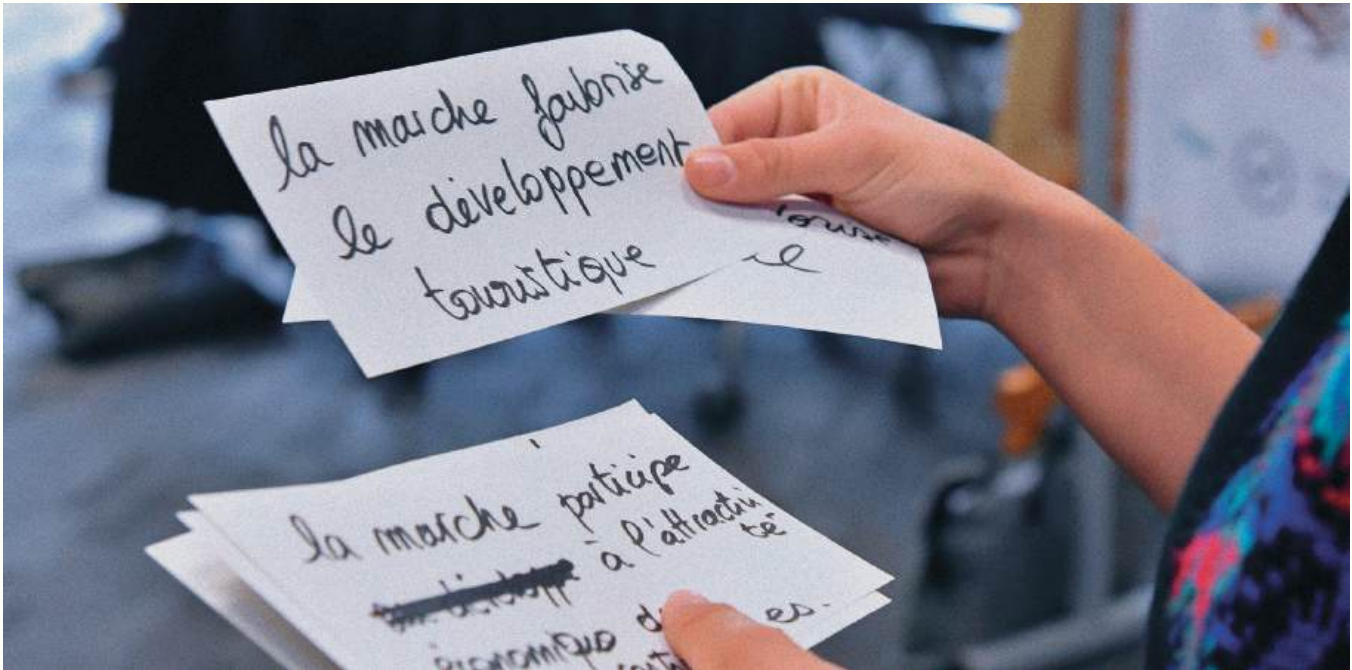 la marche favorise
le développement
touristique
la marche participe
à l'attractivi
té
économique
es.